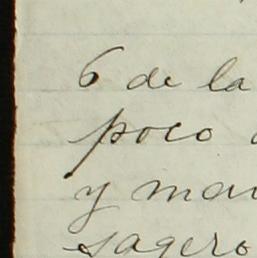 6 de la
poco
y man
sagero